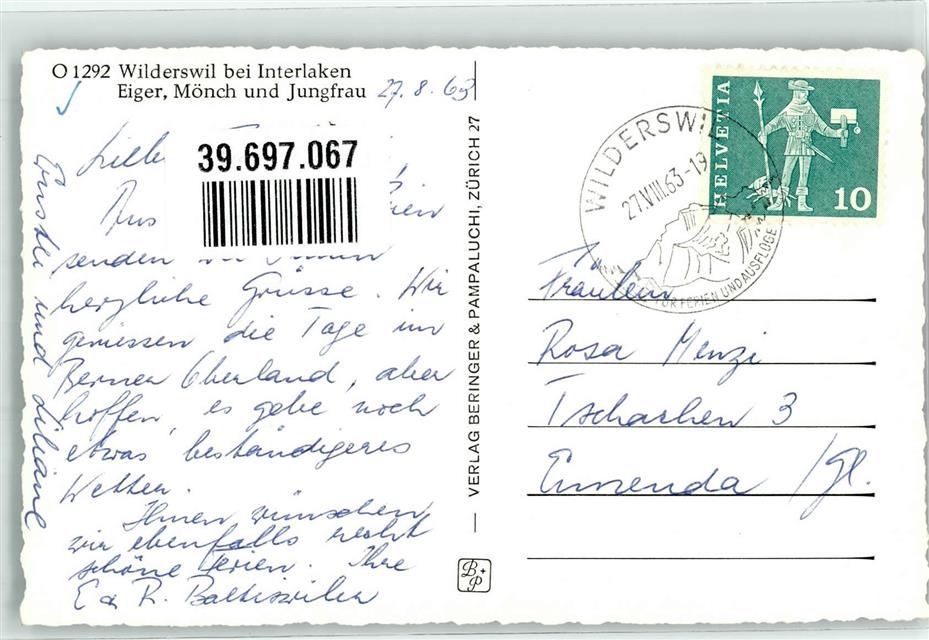 O 1292 Wilderswil bei Interlaken
Eiger, Mönch und Jungfrau
27. 8. 63
39.697.067
Aus
senden wir Ihnen
herzliche Grüsse. Wir
geniessen die Tage im
Berner Oberland, aber
hoffen, es gebe noch
etwas beständigeres
Wetter.
Ihnen wünschen
wir ebenfalls recht
schöne Ferien. Ihre
E & R. Baltiswiler
und Liliane
VERLAG BERINGER & PAMPALUCHI, ZÜRICH 27
B+P
WILDERSWIL
27.VIII.63-19
FÜR FERIEN UND AUSFLÜGE
HELVETIA
10
Fräulein
Rosa Menzi
Tschachen 3
Ennenda /Gl.